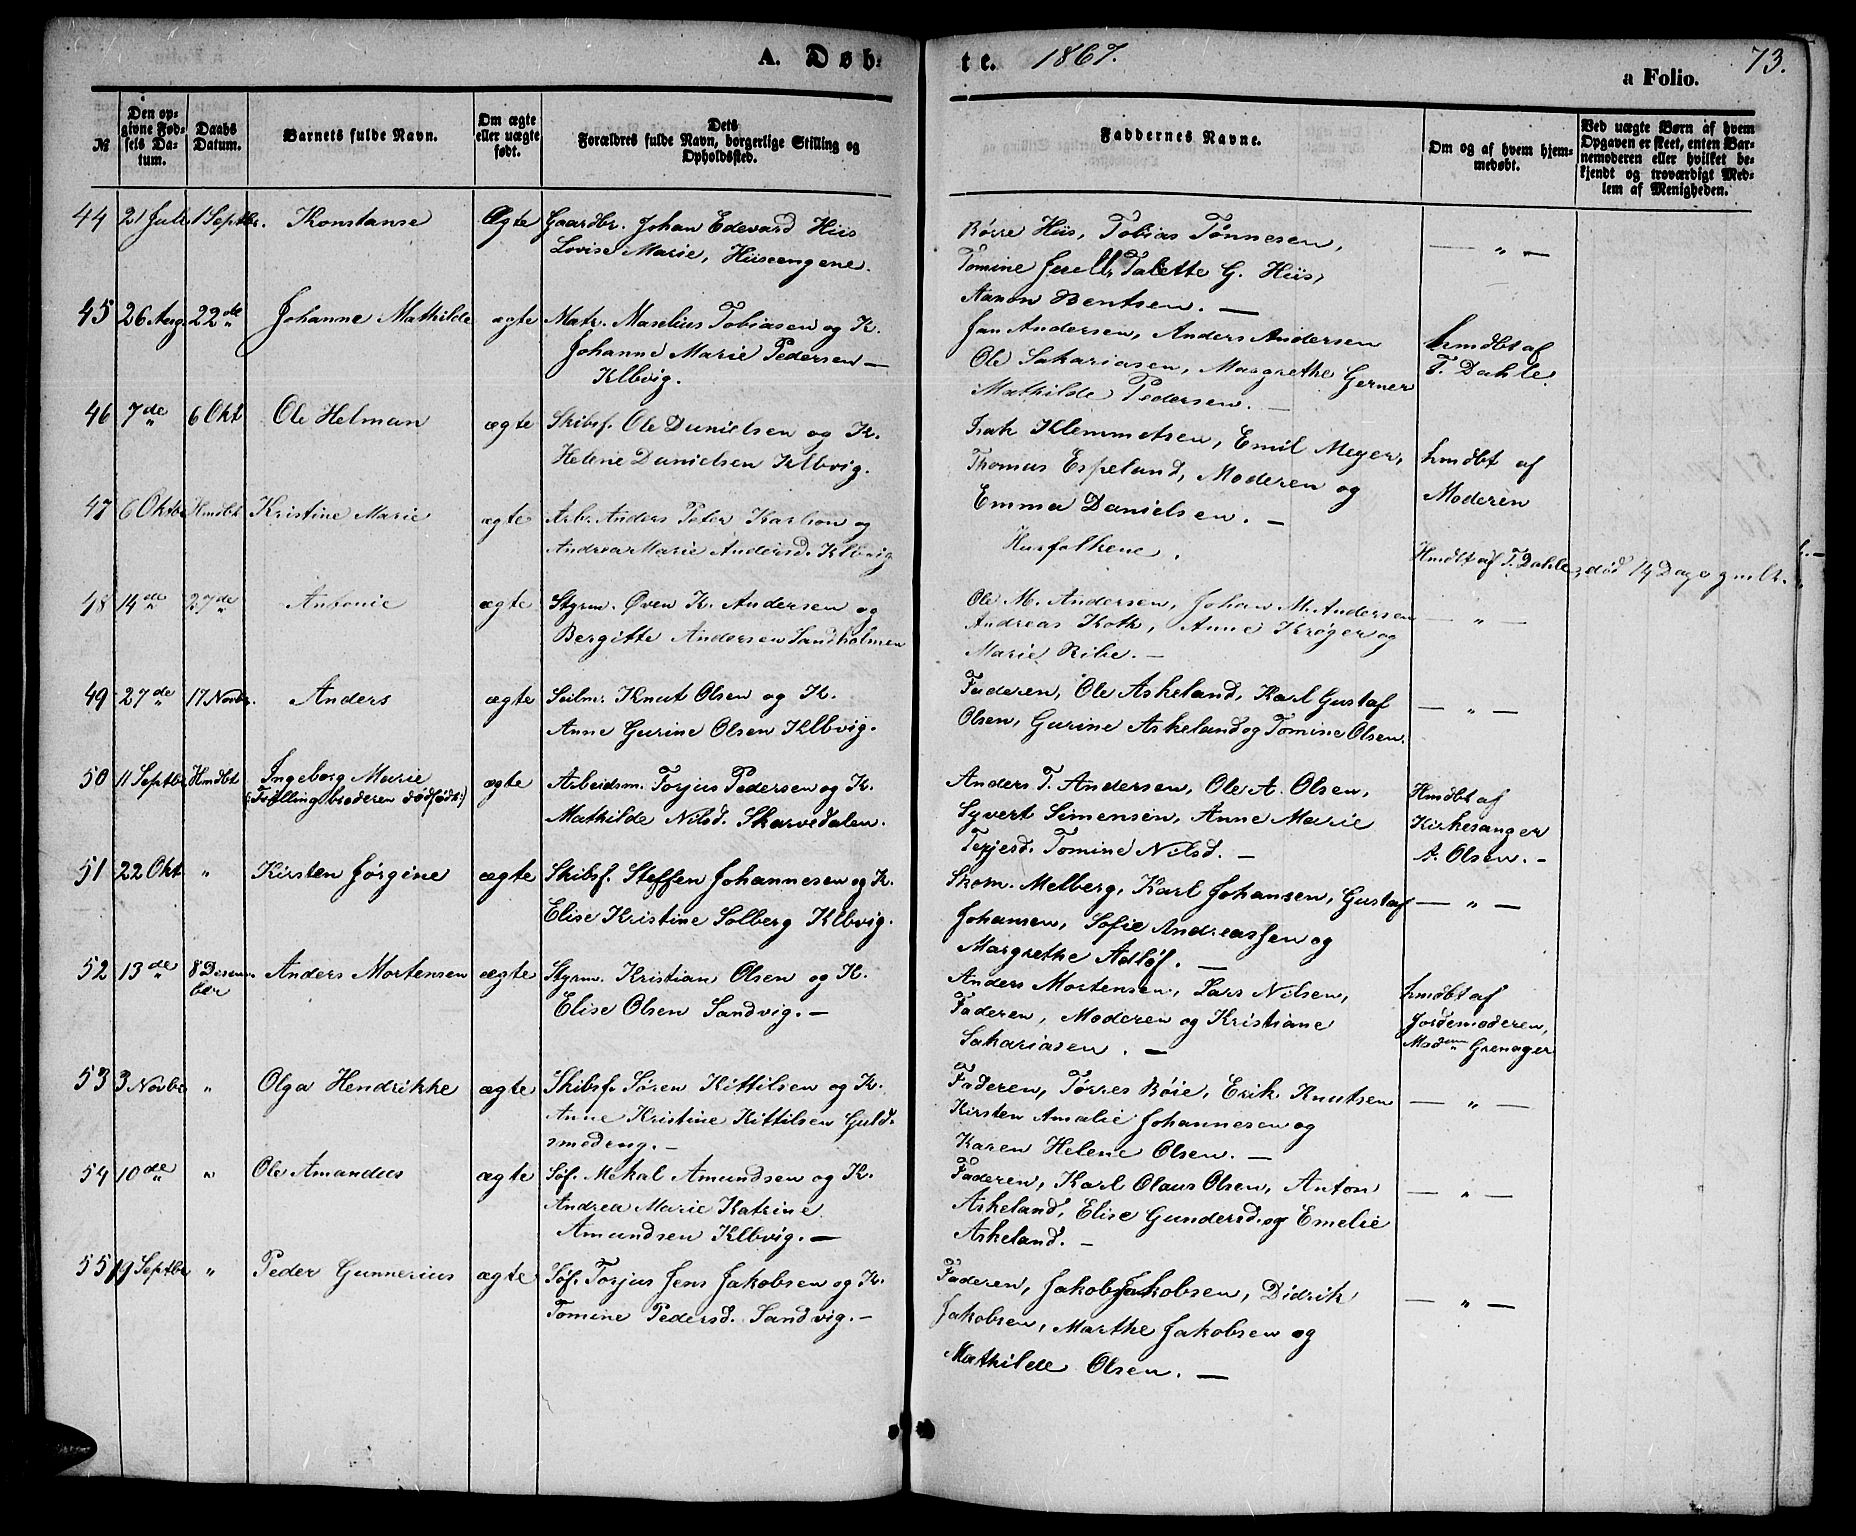 A. Døb-
te. 1867.
73.
a Folio.
№
Den op-
givne Fød-
sels Da-
tum.
Daabs
Datum.
Barnets fulde Navn.
Om ægte
eller uægte
født.
Dets
Forældres fulde Navn, borgerlige Stilling og
Opholdssted.
Faddernes Navne.
Om og af hvem hjem-
medøbt.
Ved uægte Børn af hvem
Opgaven er skeet, enten Bar-
nemoderen eller hvilket be-
kjendt og troværdigt Med-
lem af Menigheden.
44 21 Juli 1 Septbr. Konstanse Ægte Gaardbr. Johan Edevard Hiis
Lovise Marie, Hiiseengene.
Børre Hiis, Tobias Tønnesen,
Tomine Juell, Talette G. Hiis,
Aanon Bentsen. —
— " —
45 26 Aug. 22de Johanne Mathilde ægte Matr. Maselius Tobiasen og K.
Johanne Marie Pedersen —
Klbvig.
Jan Andersen, Anders Andersen
Ole Sakariasen, Margrethe Gerner
Mathilde Pedersen. —
hmdbt af
T. Dahle.
46 7de 6 Okt Ole Helman ægte Skibsf. Ole Danielsen og K.
Helene Danielsen Klbvig.
Isak Klemmetsen, Emil Meyer,
Thomas Espeland, Moderen og
Emma Danielsen. —
hmdbt af
Moderen
47 6 Oktbr Hmdbt Kristine Marie ægte Arb. Anders Peter Karlson og
Andrea Marie Andersd. Klbvig
Husfolkene.
Hmdbt af T. Dahle, død 14 Dage gmlt.
48 14de 27de Antonie ægte Styrm. Øven K. Andersen og
Bergitte Andersen Sandholmen
Ole M. Andersen, Johan M. Andersen
Andreas Koth, Anne Krøger og
Marie Ribe. —
— " —
49 27de 17 Novbr. Anders ægte Seilm. Knut Olsen og K.
Anne Gurine Olsen Klbvig.
Faderen, Ole Askeland, Karl Gustaf
Olsen, Gurine Askeland og Tomine Olsen.
— " —
50 11 Septbr Hmdbt Ingeborg Marie
(: Tvillingbroderen dødfødt:)
ægte Arbeidsm. Torjus Pedersen og K.
Mathilde Nilsd. Skarvedalen.
Anders T. Andersen, Ole A. Olsen,
Syvert Simensen, Anne Marie
Terjesd. Tomine Nilsd. —
Hmdbt af
Kirkesanger
A. Olsen. —
51 22 Okt " Kirsten Jørgine ægte Skibsf. Steffen Johannesen og K.
Elise Kristine Solberg Klbvig.
Skom. Melberg, Karl Johansen, Gustaf
Johansen, Sofie Andreassen og
Margrethe Adlöf. —
— " —
52 13de 8 Decem-
ber
Anders Mortensen ægte Styrm. Kristian Olsen og K.
Elise Olsen Sandvig. —
Anders Mortensen, Lars Nilsen,
Faderen, Moderen og Kristiane
Sakariasen. —
hmdbt af
Jordemoderen,
Madm Grenager
53 3 Novbr " Olga Hendrikke ægte Skibsf. Søren Kittilsen og K.
Anne Kristine Kittilsen Guld-
smedeng. —
Faderen, Tørres Bøie, Erik Knutsen
Kirsten Amalie Johannesen og
Karen Helene Olsen. —
— " —
54 10de " Ole Amandus ægte Søf. Mekal Amundsen og K.
Andrea Marie Katrine
Amundsen Klbvig. —
Faderen, Karl Olaus Olsen, Anton
Askeland, Elise Gundersd. og Emelie
Askeland. —
— " —
55 19 Septbr " Peder Gunnerius ægte Søf. Torjus Jens Jakobsen og K.
Tomine Pedersd. Sandvig. —
Faderen, Jakob Jakobsen, Didrik
Jakobsen, Marthe Jakobsen og
Mathilde Olsen. —
— " —